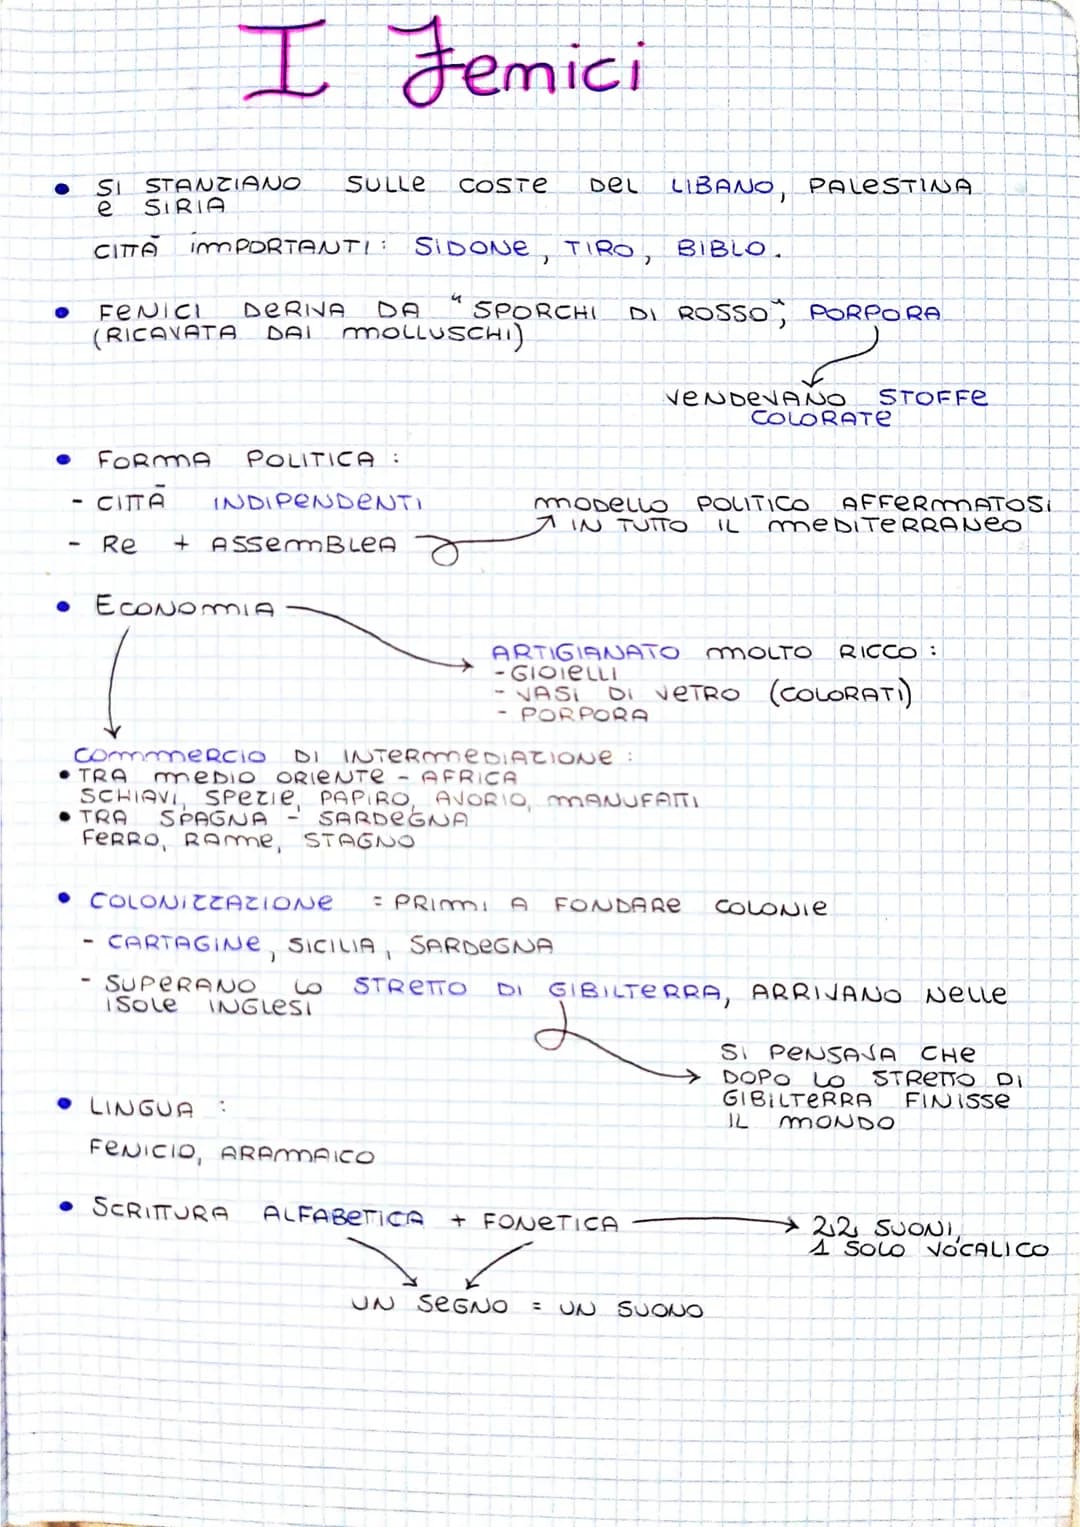 I Fenici
• SI STANZIANO SULLE COSTE DEL LIBANO, PALESTINA
e SIRIA
CITTÀ IMPORTANTI: SIDONE, TIRO, BIBLO.
• FENICI DERIVA DA "SPORCHI DI ROSSO"; PORPORA
(RICAVATA DAI MOLLUSCHI)
VENDEVANO STOFFE
COLORATE
• FORMA POLITICA:
- CITTÀ INDIPENDENTI
MODELLO POLITICO AFFERMATOSI
IN TUTTO IL MEDITERRANEO
- Re + ASSEMBLEA
• ECONOMIA
ARTIGIANATO MOLTO RICCO:
- GIOIELLI
- VASI DI VETRO (COLORATI)
- PORPORA
COMMERCIO DI INTERMEDIAZIONE:
• TRA MEDIO ORIENTE - AFRICA
SCHIAVI, SPEZIE, PAPIRO, AVORIO, MANUFATTI
• TRA SPAGNA - SARDEGNA
FERRO, RAME, STAGNO
• COLONIZZAZIONE = PRIMI A FONDARE COLONIE
- CARTAGINE, SICILIA, SARDEGNA
- SUPERANO LO STRETTO DI GIBILTERRA, ARRIVANO NELLE
ISOLE INGLESI
SI PENSAVA CHE
DOPO LO STRETTO DI
GIBILTERRA FINISSE
IL MONDO
• LINGUA:
FENICIO, ARAMAICO
• SCRITTURA ALFABETICA + FONETICA → 22 SUONI,
1 SOLO VOCALICO
UN SEGNO = UN SUONO